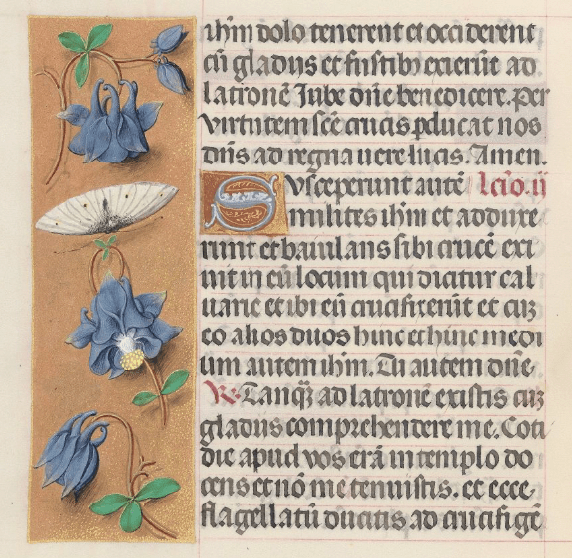 ih̄m dolo tenerent et occiderent
cū gladijs et fustib⁹ exierūt ad
latronē Jube dn̄e benedicere. Per
virtutem scē crucis pducat nos
dn̄s ad regna uere lucis. Amen.
Susceperunt autē lc̄io. ii
milites ih̄m et adduxe
runt et baiulans sibi crucē exi
uit in eū locum qui dicitur cal
uarie et ibi eū crucifixerūt et cuz
eo alios duos hinc et hinc medi
um autem ih̄m. Tu autem dn̄e
℟. Tanqz ad latronē existis cuz
gladijs comprehendere me. Coti
die apud vos erā in templo do
cens et nō me tenuistis. et ecce
flagellatū ducitis ad crucifigē